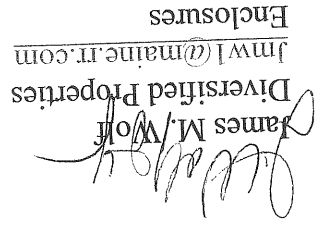 James M. Wolf
Diversified Properties
Jmw1@maine.rr.com
Enclosures